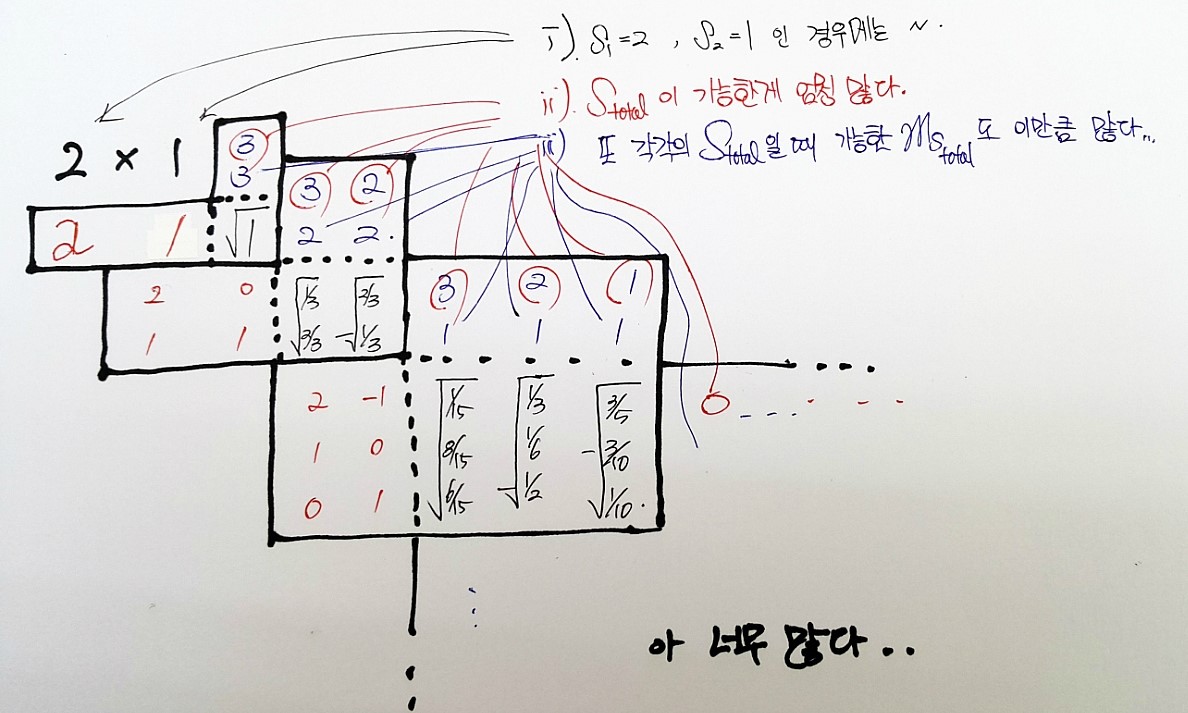 i). S₁=2 , S₂=1 인 경우에는 ~.
ii). S_total 이 가능한게 엄청 많다.
iii) 또 각각의 S_total 일 때 가능한 m_S_total 도 이만큼 많다...
2 × 1
3
3
3 2
2 1 √1 2 2.
2 0 √1/3 √2/3
1 1 √2/3 -√1/3
3 2 1
1 1 1
2 -1 √1/15 √1/3 √3/5
1 0 √8/15 √1/6 -√3/10
0 1 √6/15 -√1/2 √1/10.
아 너무 많다..